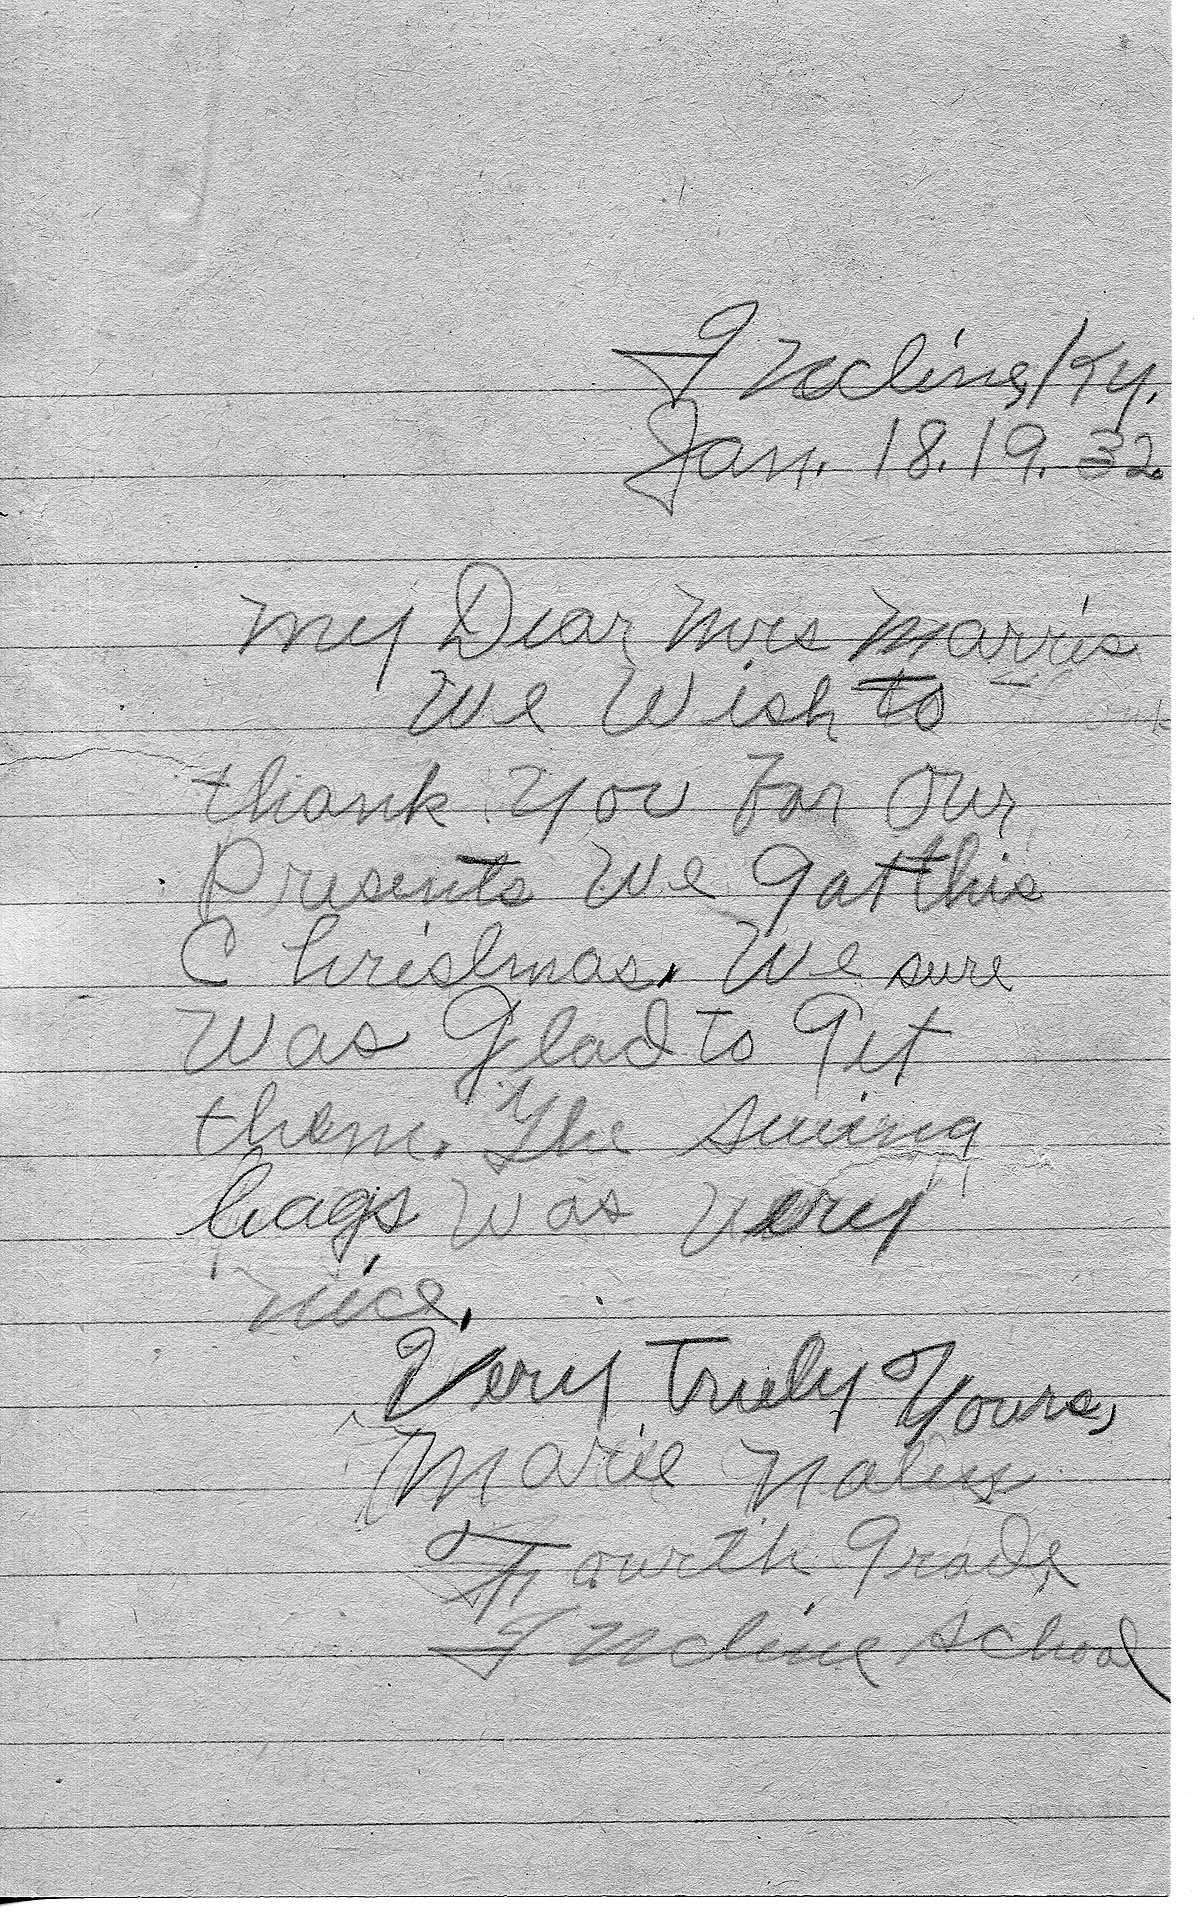 Incline, Ky.
Jan. 18. 19. 32.
My Dear Mrs Marris
We Wish to
thank You For Our
Presents We gat this
Christmas. We sure
Was Glad to Get
them. The suing
bags was very
nice.
Very Truly Yours,
Marie
Fourth Grade
Incline School